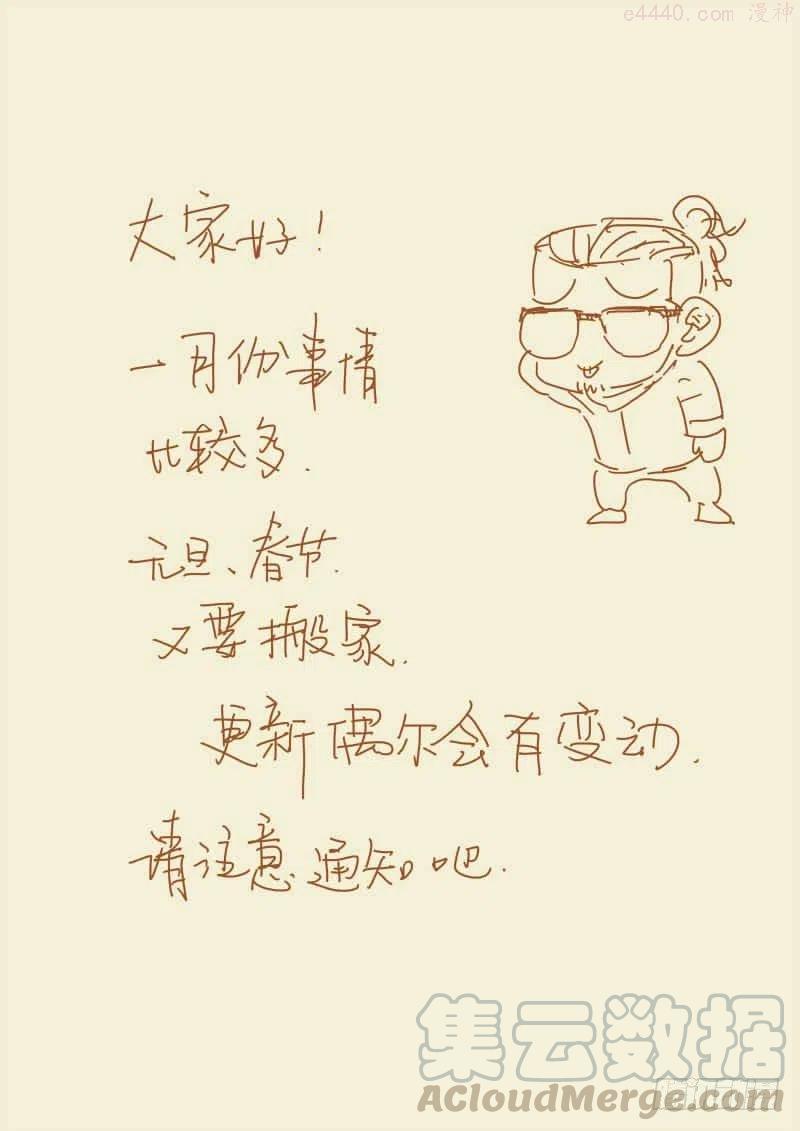 e4440.com 漫神
大家好!
一月份事情
比较多.
元旦、春节.
又要搬家.
更新偶尔会有变动.
请注意通知吧.
集云数据
ACloudMerge.com